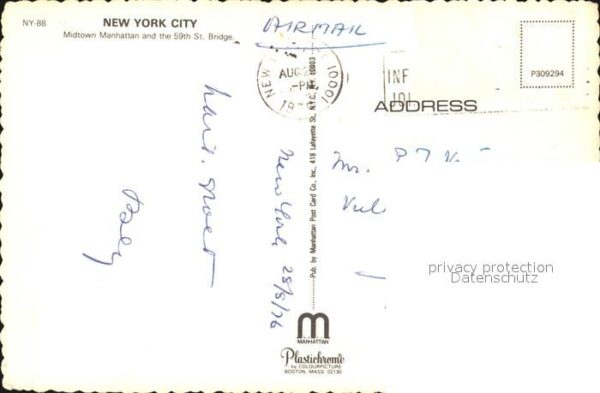 NY-88
NEW YORK CITY
Midtown Manhattan and the 59th St. Bridge.
AIRMAIL
NEW
10001
AUG 2
PM
INF
P309294
ADDRESS
Mr.
New York 28/8/76
Pub. by Manhattan Post Card Co., Inc., 418 Lafayette St., N.Y.C., N.Y. 10003
privacy protection
Datenschutz
m
MANHATTAN
Plastichrome®
by COLOURPICTURE
BOSTON, MASS. 02130